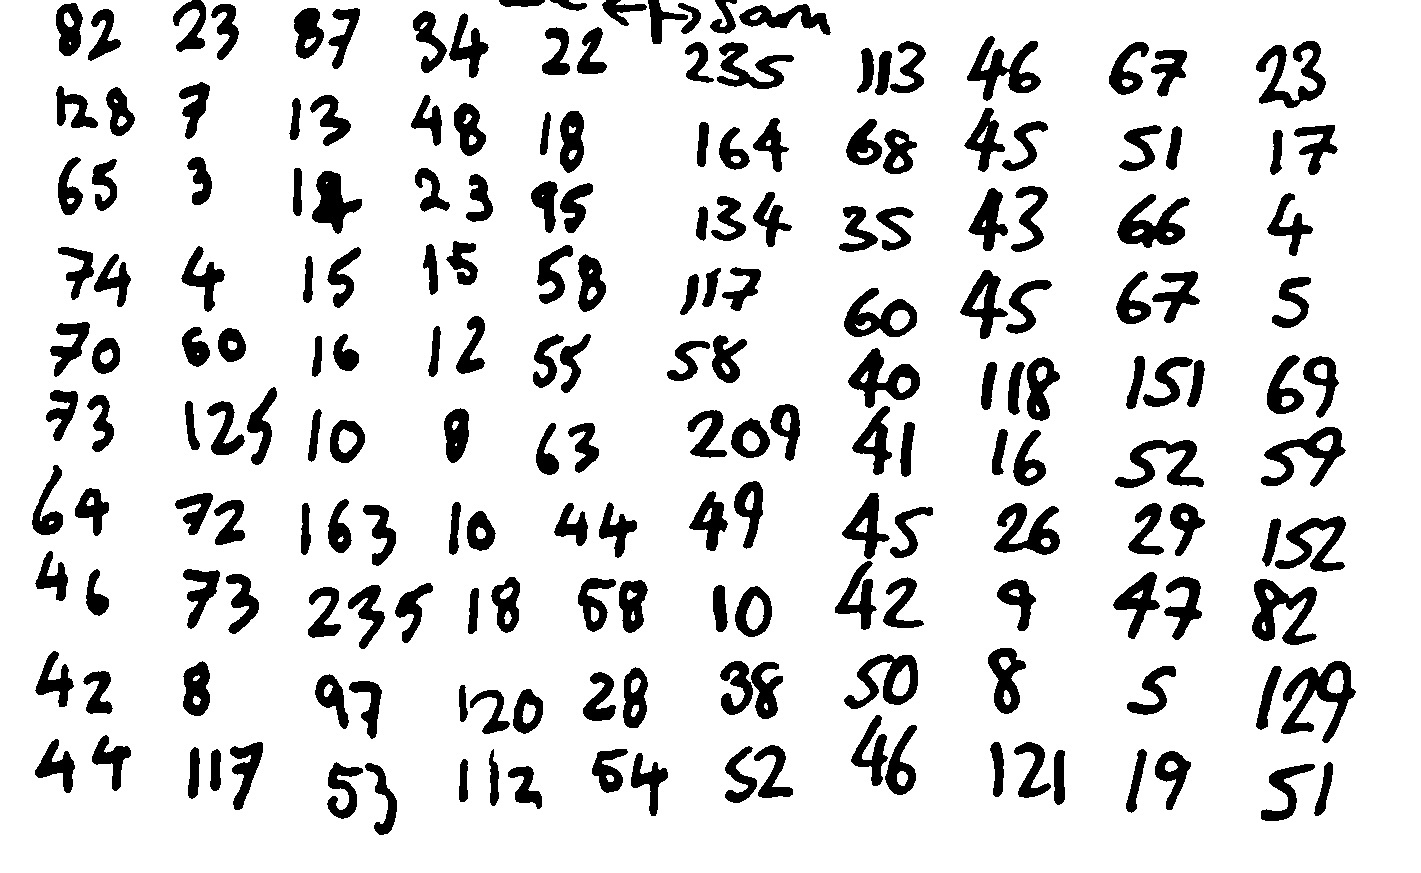 ←|→ Sam
82 23 87 34 22 235 113 46 67 23
128 7 13 48 18 164 68 45 51 17
65 3 12 23 95 134 35 43 66 4
74 4 15 15 58 117 60 45 67 5
70 60 16 12 55 58 40 118 151 69
73 125 10 8 63 209 41 16 52 59
64 72 163 10 44 49 45 26 29 152
46 73 235 18 58 10 42 9 47 82
42 8 97 120 28 38 50 8 5 129
44 117 53 112 54 52 46 121 19 51